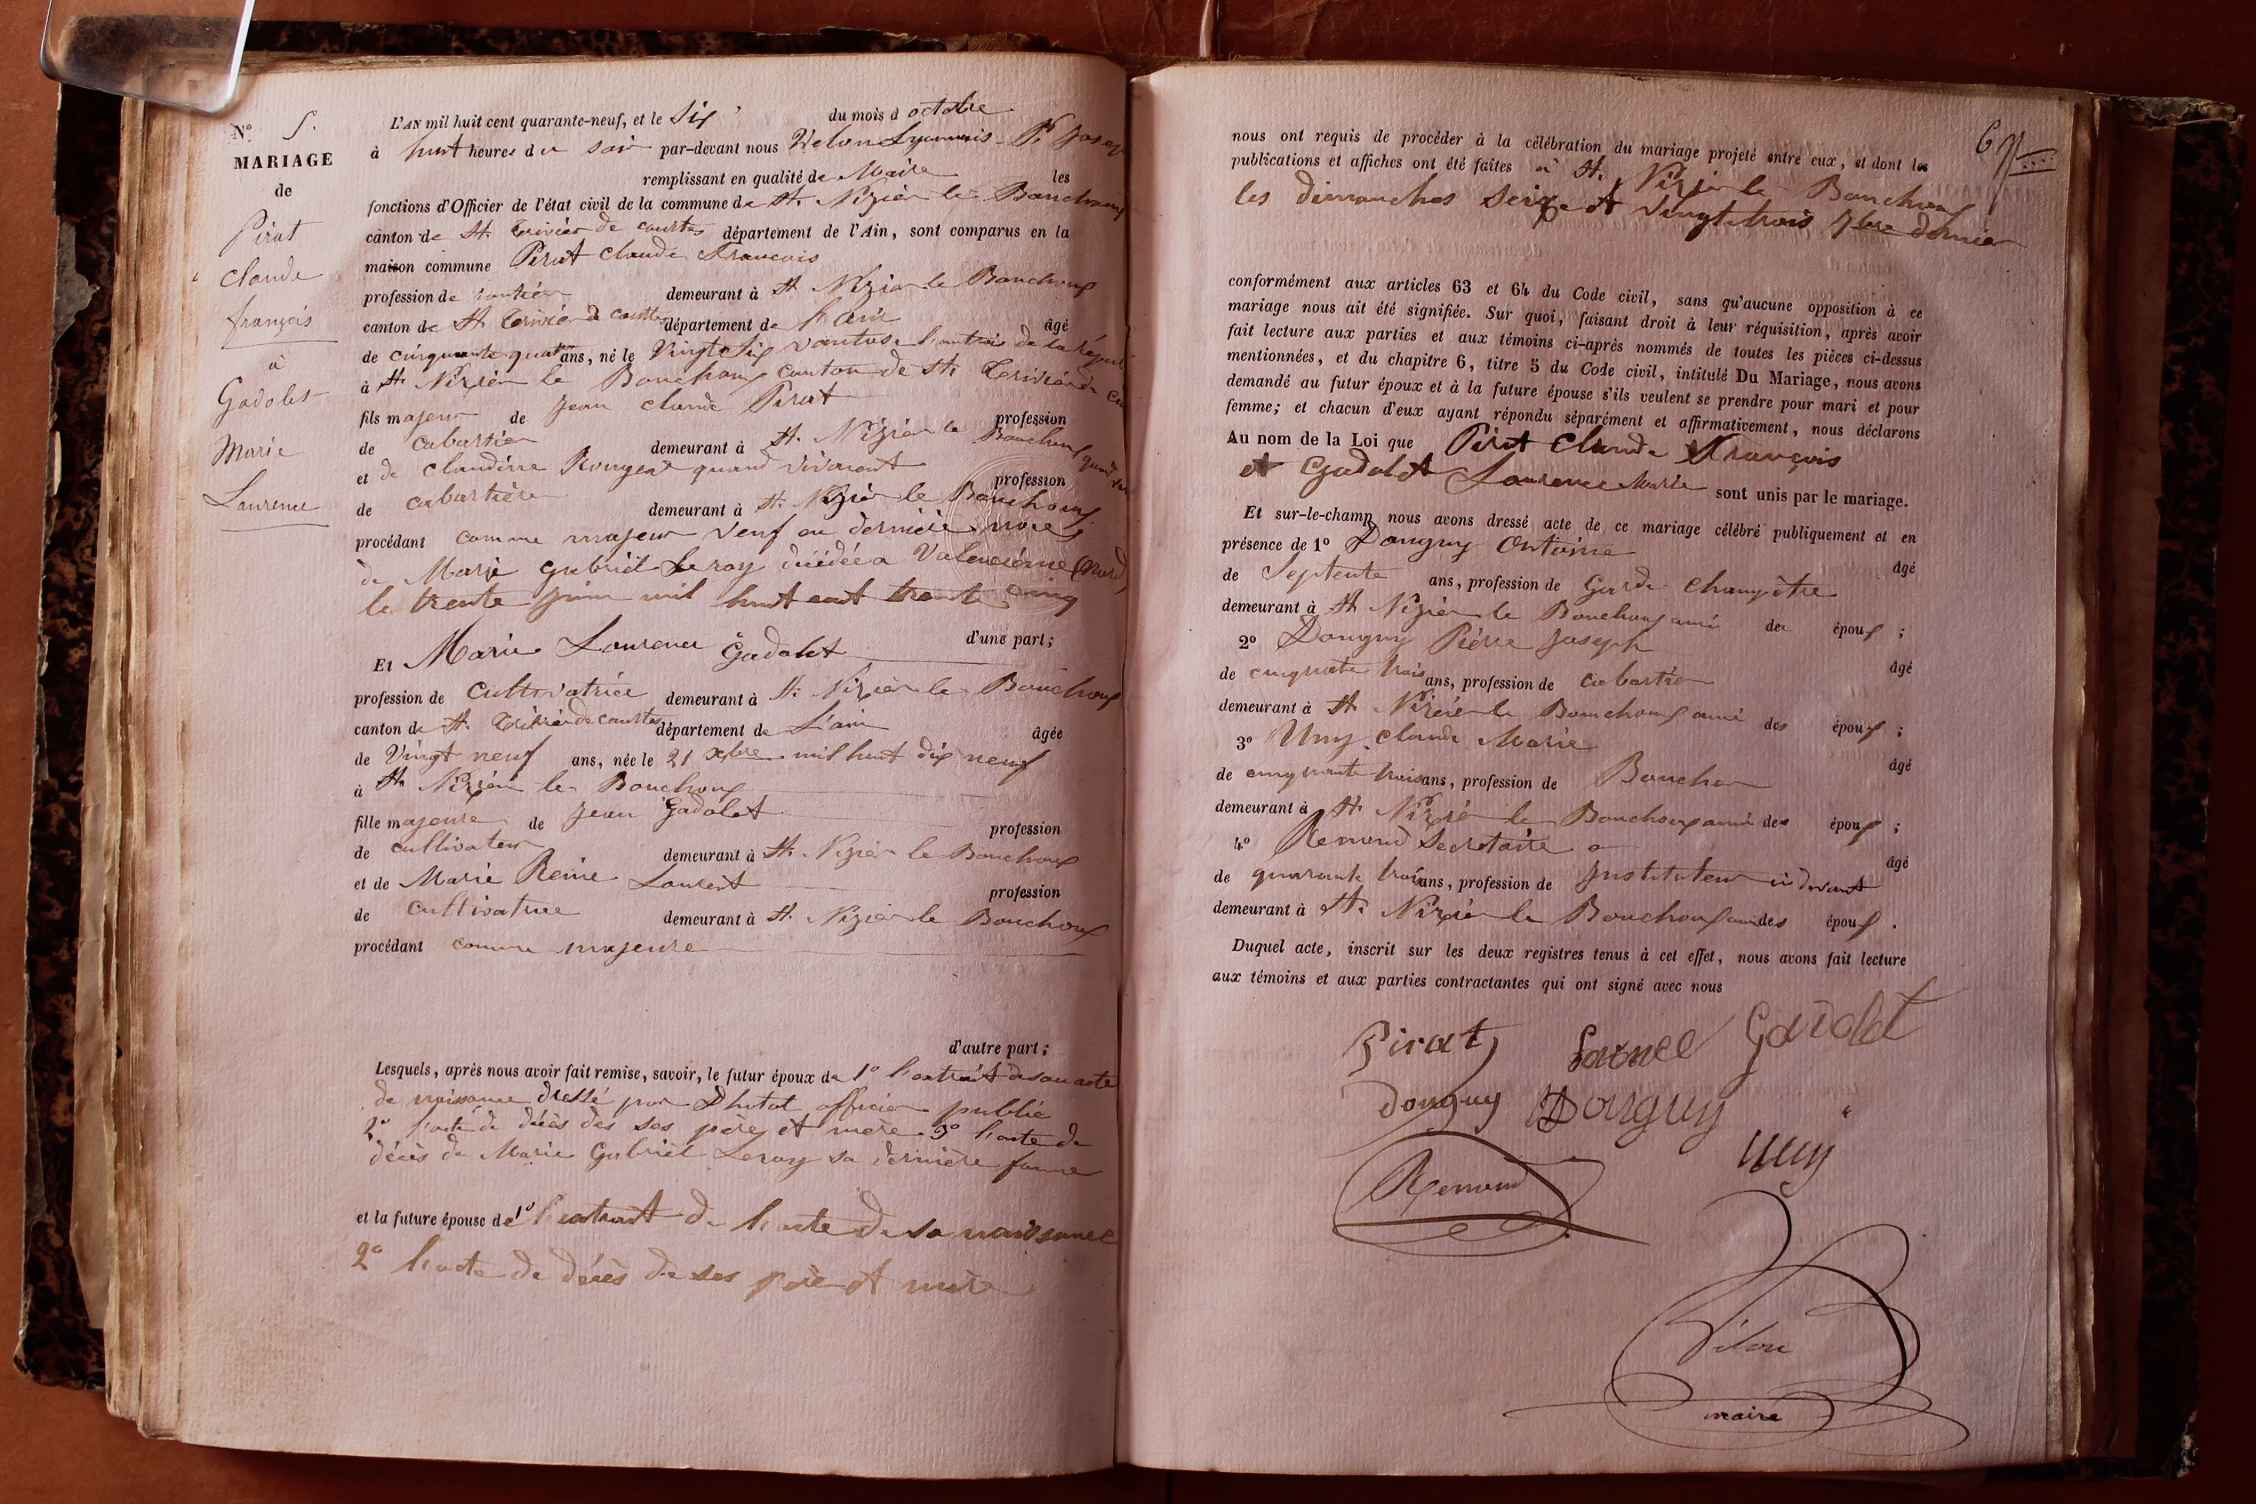 N.º 5.
MARIAGE
de
Pirat
Claude
françois
à
Gadolet
Marie
Laurence
L'AN mil huit cent quarante-neuf, et le Six du mois d octobre
à huit heures du soir par-devant nous Velon Lyonnais Pre Joseph
remplissant en qualité de Maire les
fonctions d'Officier de l'état civil de la commune de St. Nizier le Bouchoux
canton de St. Trivier de Courtes département de l'Ain, sont comparus en la
maison commune Pirat Claude François
profession de rentier demeurant à St Nizier le Bouchoux
canton de St Trivier de Courtes département de L'ain âgé
de cinquante quatre ans, né le Vingt Six Ventose l'an trois de la Répub
à St. Nizier le Bouchoux canton de St. Trivier de Cou
fils majeur de Jean Claude Pirat profession
de cabartier demeurant à St. Nizier le Bouchoux quand
et de Claudine Rougeat quand vivaient profession
de cabartière demeurant à St. Nizier le Bouchoux
procédant comme majeur Veuf en dernière noces
de Marie Gabriel Leroy décédée a Valencienne (Nord)
le trente juin mil huit cent trente cinq
d'une part;
Et Marie Laurence Gadolet
profession de Cultivatrice demeurant à St. Nizier le Bouchoux
canton de St. Trivier de Courtes département de L'ain âgée
de Vingt neuf ans, née le 21 Xbre mil huit dix neuf
à St Nizier le Bouchoux
fille majeure de Jean Gadolet profession
de cultivateur demeurant à St. Nizier le Bouchoux
et de Marie Reine Laurent profession
de cultivatrice demeurant à St. Nizier le Bouchoux
procédant comme majeure
d'autre part;
Lesquels, après nous avoir fait remise, savoir, le futur époux de 1º l'extrait de son acte
de naissance dressé par Dhutal officier public
2º l'acte de décès des ses père et mère 3º l'acte de
décès de Marie Gabriel Leroy sa dernière femme
et la future épouse de 1º l'extrait de l'acte de sa naissance
2º l'acte de décès de ses père et mère
67
nous ont requis de procéder à la célébration du mariage projeté entre eux, et dont les
publications et affiches ont été faites à St. Nizier le Bouchoux
les dimanches Seize et Vingt trois 7bre dernier
conformément aux articles 63 et 64 du Code civil, sans qu'aucune opposition à ce
mariage nous ait été signifiée. Sur quoi, faisant droit à leur réquisition, après avoir
fait lecture aux parties et aux témoins ci-après nommés de toutes les pièces ci-dessus
mentionnées, et du chapitre 6, titre 5 du Code civil, intitulé Du Mariage, nous avons
demandé au futur époux et à la future épouse s'ils veulent se prendre pour mari et pour
femme; et chacun d'eux ayant répondu séparément et affirmativement, nous déclarons
Au nom de la Loi que Pirat Claude François
et Gadolet Laurence Marie sont unis par le mariage.
Et sur-le-champ nous avons dressé acte de ce mariage célébré publiquement et en
présence de 1º Donguy Antoine âgé
de Septente ans, profession de Garde Champêtre
demeurant à St Nizier le Bouchoux ami des époux;
2º Donguy Pierre Joseph âgé
de cinquante trois ans, profession de cabartier
demeurant à St Nizier le Bouchoux ami des époux;
3º Uny Claude Marie âgé
de cinquante trois ans, profession de Boucher
demeurant à St. Nizier le Bouchoux ami des époux;
4º Renoud Secretaire âgé
de quarante trois ans, profession de Instituteur ci devant
demeurant à St. Nizier le Bouchoux ami des époux.
Duquel acte, inscrit sur les deux registres tenus à cet effet, nous avons fait lecture
aux témoins et aux parties contractantes qui ont signé avec nous
Pirat Gadolet
Donguy Donguy
Uny
Renoud
Vilon
maire